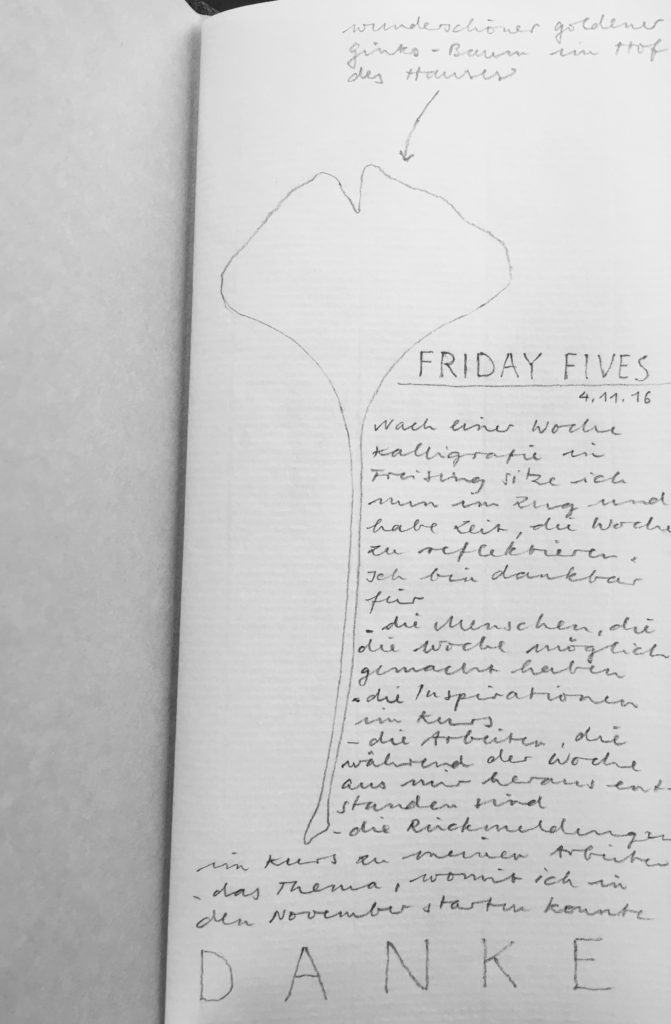 wunderschöner goldener
Ginko-Baum im Hof
des Hauses
FRIDAY FIVES
4.11.16
Nach einer Woche
Kalligrafie in
Freising sitze ich
nun im Zug und
habe Zeit, die Woche
zu reflektieren.
Ich bin dankbar
für
- die Menschen, die
die Woche möglich
gemacht haben
- die Inspirationen
im Kurs
- die Arbeiten, die
während der Woche
aus mir heraus ent-
standen sind
- die Rückmeldungen
im Kurs zu meinen Arbeiten
- das Thema, womit ich in
den November starten konnte
DANKE